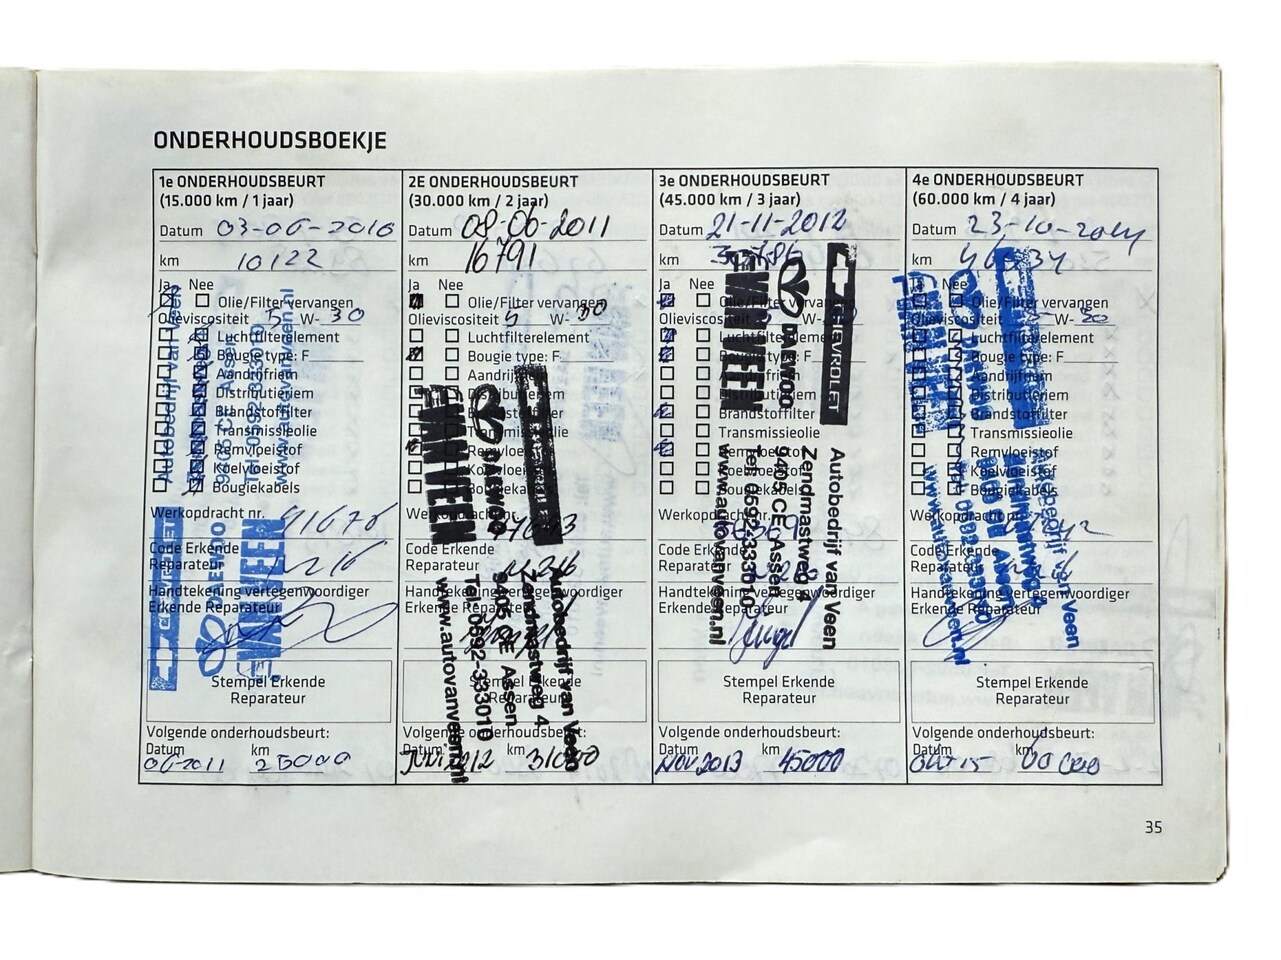 ONDERHOUDSBOEKJE
1e ONDERHOUDSBEURT
(15.000 km / 1 jaar)
Datum 03-06-2010
km 10122
Ja Nee
Olie/Filter vervangen
Olieviscositeit 5 W- 30
Luchtfilterelement
Bougie type: F
Aandrijfriem
Distributieriem
Brandstoffilter
Transmissieolie
Remvloeistof
Koelvloeistof
Bougiekabels
Werkopdracht nr.
Code Erkende
Reparateur
Handtekening vertegenwoordiger
Erkende Reparateur
Autobedrijf van Veen
9405 CE Assen
www.autovanveen.nl
CHEVROLET
DAEWOO
VAN VEEN
Stempel Erkende
Reparateur
Volgende onderhoudsbeurt:
Datum km
06-2011 25000
2E ONDERHOUDSBEURT
(30.000 km / 2 jaar)
Datum 08-06-2011
km 16791
Ja Nee
Olie/Filter vervangen
Olieviscositeit 5 W- 30
Luchtfilterelement
Bougie type: F
Aandrijfriem
Distributieriem
Brandstoffilter
Transmissieolie
Remvloeistof
Koelvloeistof
Bougiekabels
Werkopdracht nr.
Code Erkende
Reparateur
Handtekening vertegenwoordiger
Erkende Reparateur
CHEVROLET
DAEWOO
VAN VEEN
Autobedrijf van Veen
Zendmastweg 4
9405 CE Assen
Tel: 0592-333010
www.autovanveen.nl
Stempel Erkende
Reparateur
Volgende onderhoudsbeurt:
Datum km
JUNI 2012 31000
3e ONDERHOUDSBEURT
(45.000 km / 3 jaar)
Datum 21-11-2012
km 30786
Ja Nee
Olie/Filter vervangen
Olieviscositeit
Luchtfilterelement
Bougie type: F
Aandrijfriem
Distributieriem
Brandstoffilter
Transmissieolie
Remvloeistof
Koelvloeistof
Bougiekabels
Werkopdracht nr.
Code Erkende
Reparateur
Handtekening vertegenwoordiger
Erkende Reparateur
CHEVROLET
DAEWOO
VAN VEEN
Autobedrijf van Veen
Zendmastweg 4
9405 CE Assen
Tel: 0592-333010
www.autovanveen.nl
Stempel Erkende
Reparateur
Volgende onderhoudsbeurt:
Datum km
NOV 2013 45000
4e ONDERHOUDSBEURT
(60.000 km / 4 jaar)
Datum 23-10-2014
km
Ja Nee
Olie/Filter vervangen
Olieviscositeit 5 W- 30
Luchtfilterelement
Bougie type: F
Aandrijfriem
Distributieriem
Brandstoffilter
Transmissieolie
Remvloeistof
Koelvloeistof
Bougiekabels
Werkopdracht nr.
Code Erkende
Reparateur
Handtekening vertegenwoordiger
Erkende Reparateur
CHEVROLET
DAEWOO
VAN VEEN
Autobedrijf van Veen
Zendmastweg 4
9405 CE Assen
Tel: 0592-333010
www.autovanveen.nl
Stempel Erkende
Reparateur
Volgende onderhoudsbeurt:
Datum km
OKT 15 60 000
35